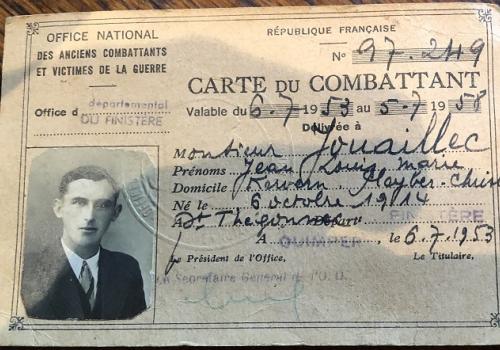 OFFICE NATIONAL
DES ANCIENS COMBATTANTS
ET VICTIMES DE LA GUERRE
Office d départemental
DU FINISTÈRE
RÉPUBLIQUE FRANÇAISE
No 97.249
CARTE DU COMBATTANT
Valable du 6-7 1953 au 5-7 1958
Délivrée à
Monsieur Jouaillec
Prénoms Jean Louis Marie
Domicile Kervern, Pleyber-Christ
Né le 6 octobre 1914
A St Thégonnec FINISTÈRE
A QUIMPER, le 6.7.1953
Le Président de l'Office, Le Titulaire,
Le Secrétaire Général de l'O.D.